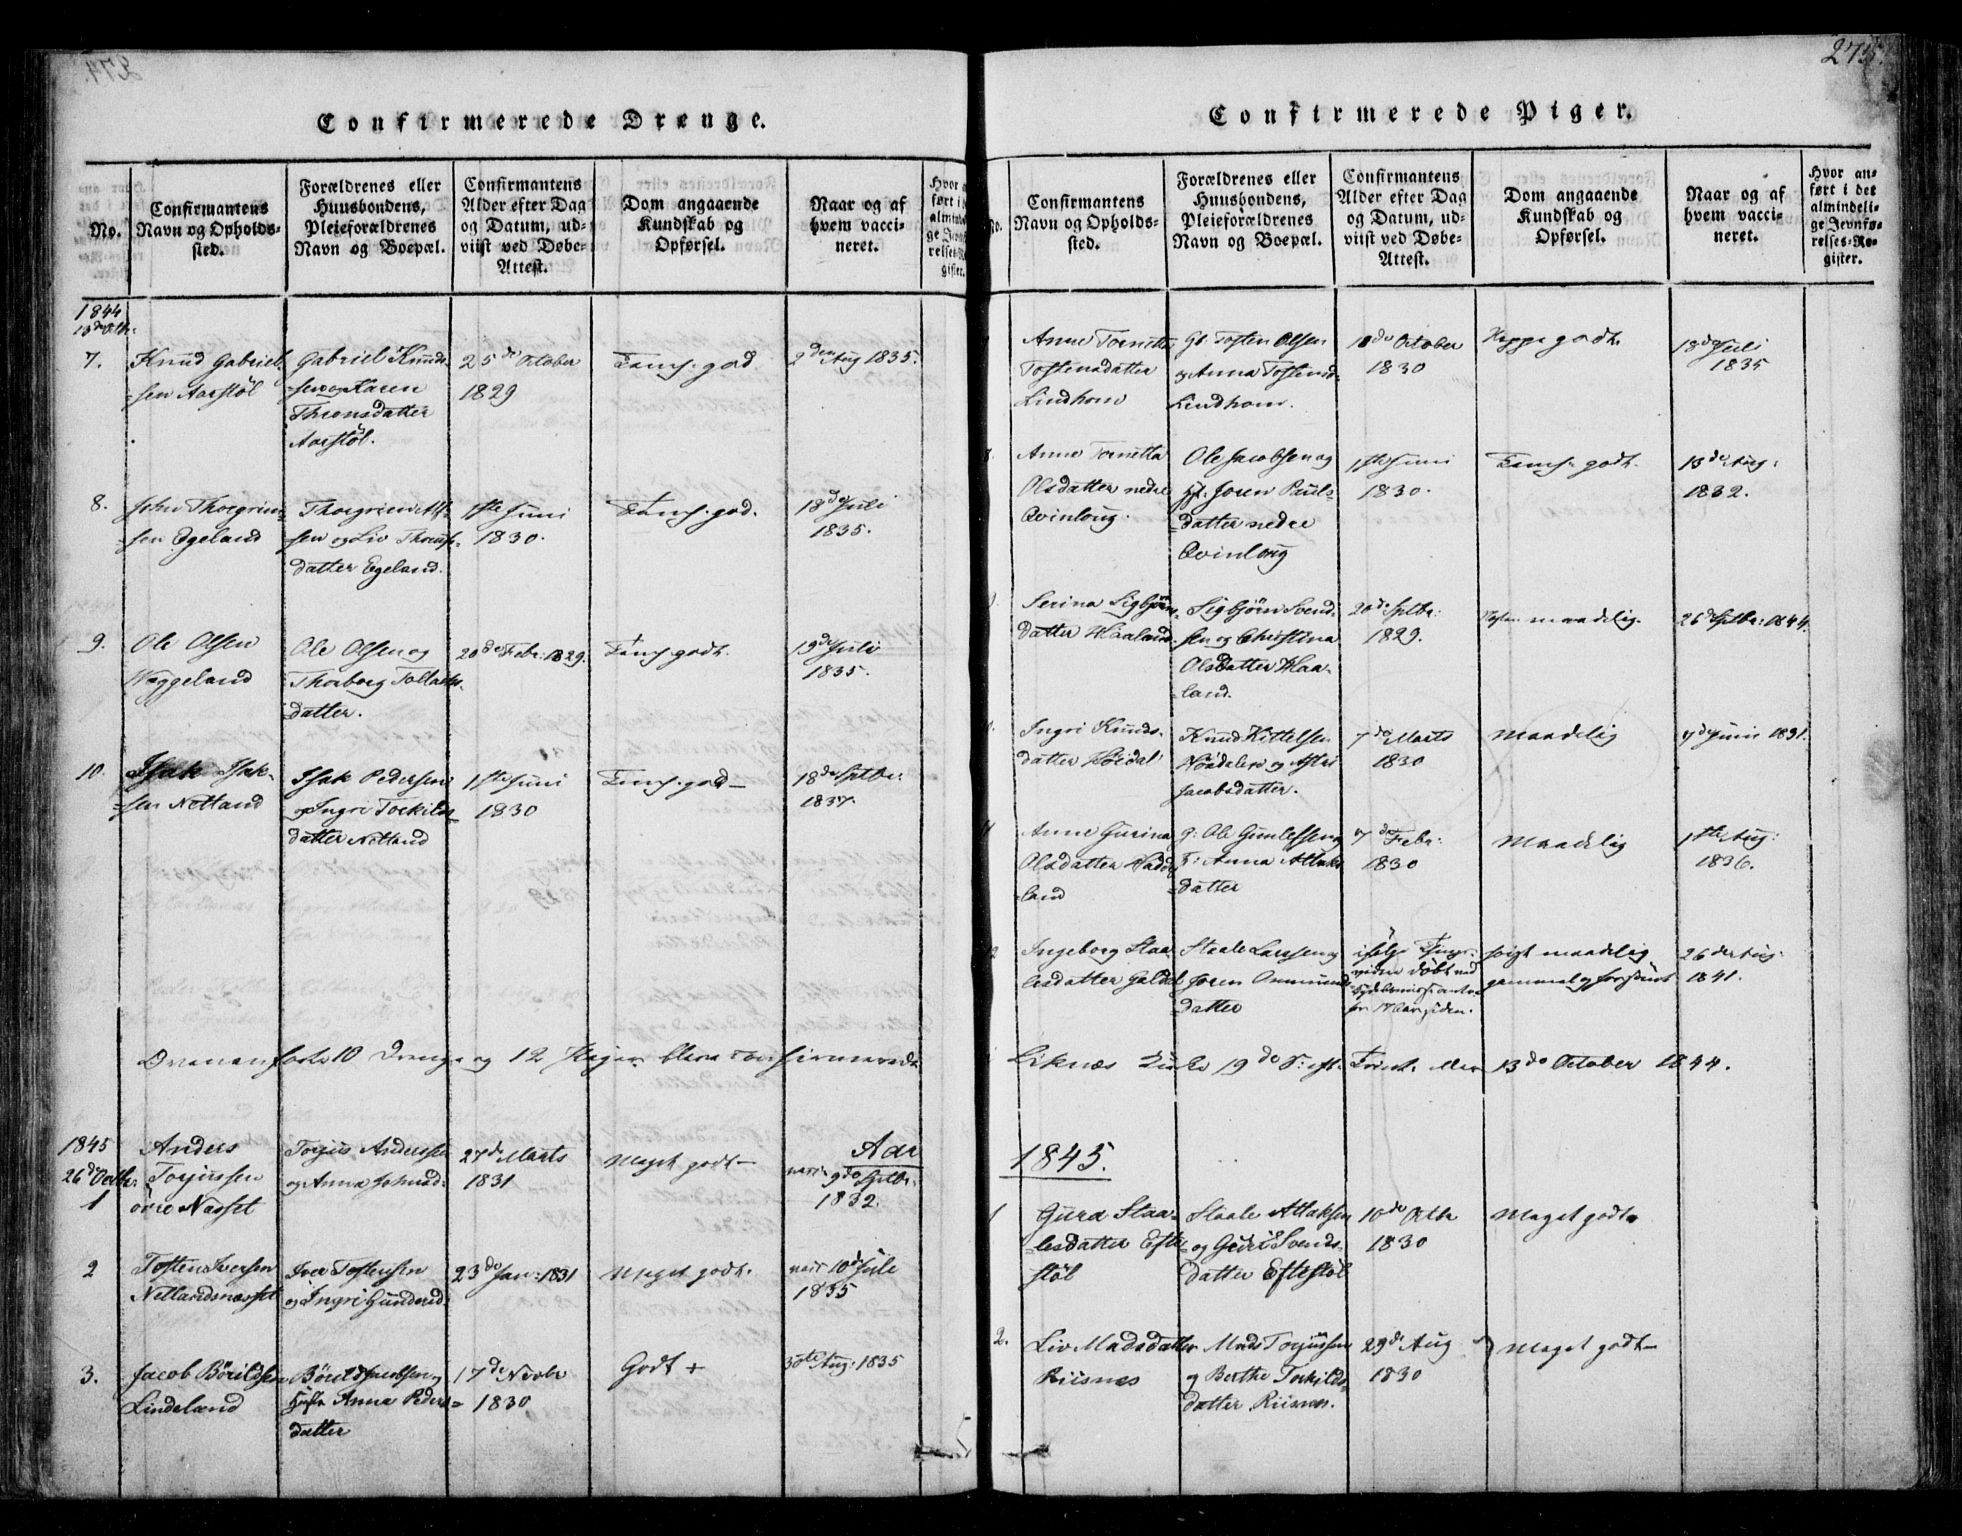 274.
Confirmerede Drenge.
No.
Confirmantens
Navn og Opholds-
sted.
Forældrenes eller
Huusbondens,
Pleieforældrenes
Navn og Boepæl.
Confirmantens
Alder efter Dag
og Datum, ud-
viist ved Døbe-
Attest.
Dom angaaende
Kundskab og
Opførsel.
Naar og af
hvem vacci-
neret.
1844
13de Octbr.
7.
Knud Gabriel-
sen Aarstöl
Gabriel Knud-
sen og Karen
Thronsdatter
Aarstöl.
25de October
1829
Tems. god
2den Aug 1835.
8.
John Thorgrim-
sen Egeland
sen og Liv
datter Egeland.
1ste Juni
1830.
Tems. god.
18de Juli
1835.
9.
Ole Olsen
Væggeland
Ole Olsen og
Thorborg Tollaks-
datter.
20de Febr: 1829.
Tems. godt.
19de Juli
1835.
10.
Isak Isak-
sen Netland
Isak Pedersen
og Ingri Torkilds-
datter Netland
1ste Juni
1830
Tems. god
18de Septbr:
1837.
Ovenanførte 10 Drenge og 12 Piger bleve confirmerede
1845
26de Octbr.
1
Anders
Torjussen
övre Næsset
Torjus Anderssen
og Anna
27de Marts
1831
Meget godt
9de Septbr.
1832.
2
Tosten Iversen
Netlandsnæsset
Iver Tostensen
og Ingri
23de Jan: 1831
Meget godt.
10de Juli
1835
3.
Jacob Börildsen
Lindeland
Börild Jacobsen og
Anna Peders-
datter
17de Novbr
1830
Godt +
30te Aug: 1835
275.
Confirmerede Piger.
No.
Confirmantens
Navn og Opholds-
sted.
Forældrenes eller
Huusbondens,
Pleieforældrenes
Navn og Boepæl.
Confirmantens
Alder efter Dag
og Datum, ud-
viist ved Døbe-
Attest.
Dom angaaende
Kundskab og
Opførsel.
Naar og af
hvem vacci-
neret.
Hvor an-
ført i det
almindeli-
ge Jevnfø-
relses-Re-
gister.
Anne Tornetta
Tostensdatter
Lindhom
Tosten Olsen
og Anna Tostensd.
Lindhom.
18de October
1830
godt.
18de Juli
1835
Anne Tornetta
Olsdatter nedre
Qvinloug.
Ole Jacobsen og
Joren Pauls-
datter nedre
Qvinloug
1ste Juni
1830.
Tems. godt.
13de Aug:
1832.
Serina Sigbjörns-
datter Haaland.
Sigbjörn Svend-
sen og Christina
Olsdatter Haa-
land.
20de Sptbr:
1829.
maadelig.
26de Sptbr: 1844.
Ingri Knuds-
datter Höidal
Knud Kittelsen
og Astri
Jacobsdatter.
7de Marts
1830
Maadelig
7de Juni 1831.
11
Anne Gurina
Olsdatter
land
Ole Gunlefsen og
Anna Atlaks-
datter
7de Febr:
1830
Maadelig
1ste Aug:
1836.
Ingeborg Staa-
lesdatter
Staale Larssen og
Joren Ommunds-
datter
ifölge
döbt ved
for 17 Aar siden.
maadelig
26de Aug:
1841.
Liknæs Kirke 19de S: eft. Trinit. 13de October 1844.
1845.
1
Gurd Staa-
lesdatter Efte-
stöl
Staale Atlaksen
og Guri Svends-
datter Eftestöl
10de Octbr
1830
Meget godt
2.
Liv Madsdatter
Riisnes
Mads Torjussen
og Berthe Torkilds-
datter Riisnes.
29de Aug
1830
Meget godt